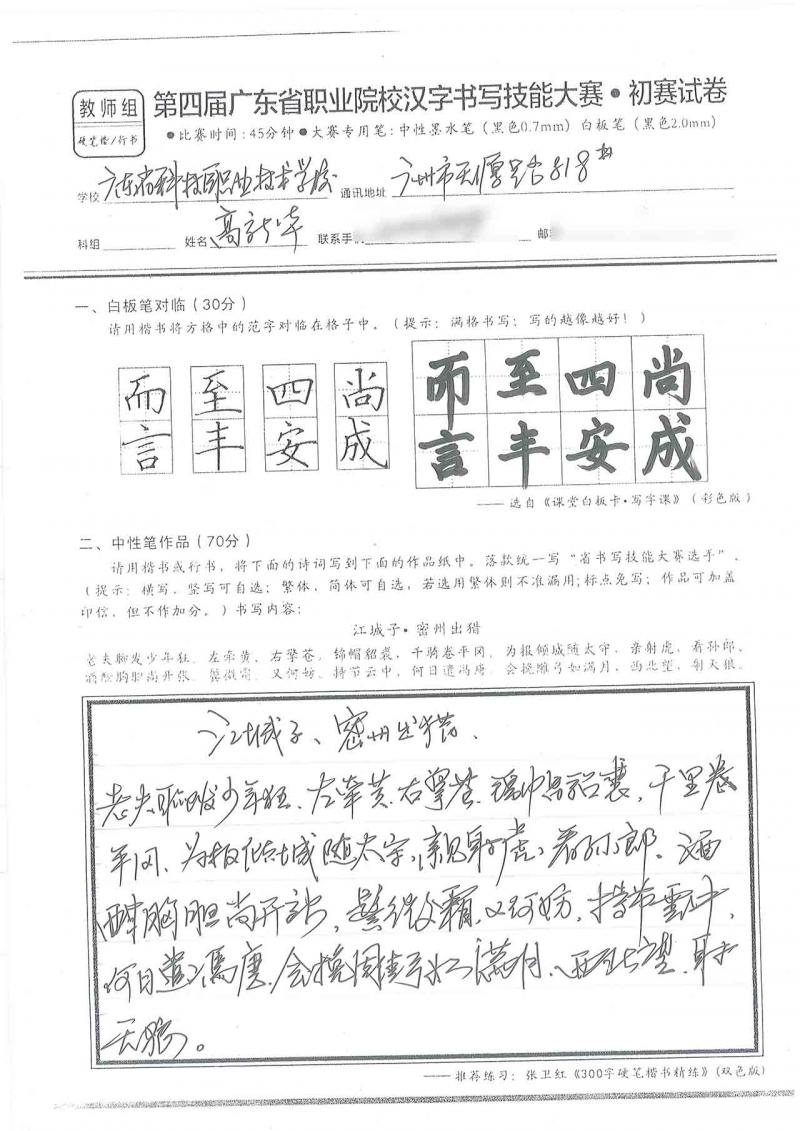 教师组
硬笔楷/行书
第四届广东省职业院校汉字书写技能大赛•初赛试卷
●比赛时间:45分钟●大赛专用笔:中性墨水笔(黑色0.7mm)白板笔(黑色2.0mm)
学校 广东省科技职业技术学校 通讯地址 广州市天
科组 姓名 高 华 联系手
一、白板笔对临(30分)
请用楷书将方格中的范字对临在格子中。(提示:满格书写;写的越像越好!)
而 至 四 尚 而 至 四 尚
言 丰 安 成 言 丰 安 成
——选自《课堂白板卡•写字课》(彩色版)
二、中性笔作品(70分)
请用楷书或行书,将下面的诗词写到下面的作品纸中。落款统一写“省书写技能大赛选手”。
(提示:横写、竖写可自选;繁体、简体可自选,若选用繁体则不准漏用;标点免写;作品可加盖
印信,但不作加分。)书写内容:
江城子•密州出猎
老夫聊发少年狂,左牵黄、右擎苍,锦帽貂裘,千骑卷平冈,为报倾城随太守,亲射虎,看孙郎。
酒酣胸胆尚开张,鬓微霜,又何妨,持节云中,何日遣冯唐,会挽雕弓如满月,西北望,射天狼。
江城子、密州出猎、
老夫聊发少年狂、左牵黄、右擎苍、锦帽貂裘,千里卷
平冈、为报倾城随太守,亲射虎,看孙郎。酒
酣胸胆尚开张,鬓微霜,又何妨,持节云中,
何日遣冯唐,会挽雕弓如满月、西北望,射
天狼。
——推荐练习:张卫红《300字硬笔楷书精练》(双色版)